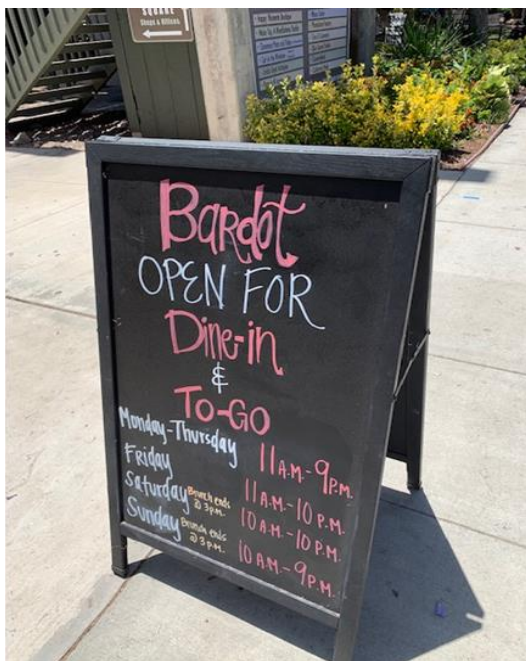 SQUARE
Shops & Offices
Bardot
OPEN FOR
Dine-in
&
TO-GO
Monday-Thursday 11A.M.-9P.M.
Friday 11A.M.-10P.M.
Saturday Brunch ends @ 3p.m. 10A.M.-10P.M.
Sunday Brunch ends @ 3p.m. 10A.M.-9P.M.